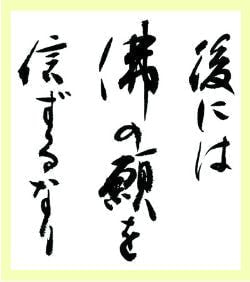 後には
佛の願を
信ずるなり